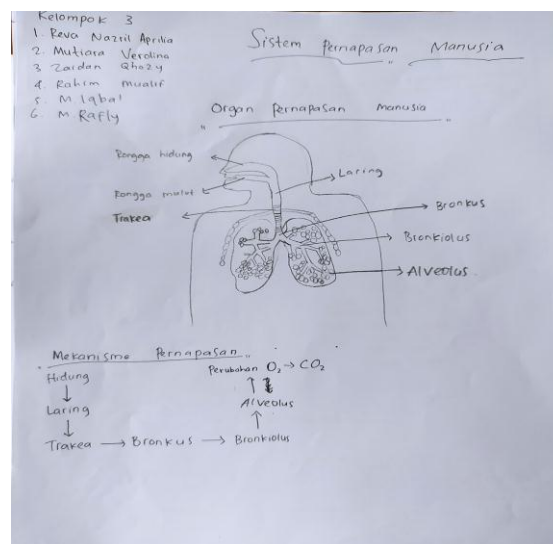 Kelompok 3
1. Reva Nazril Aprilia
2. Mutiara Verolina
3 Zaidan Qhozy
4. Rahim Mualif
5. M. Iqbal
6. M. Rafly
Sistem Pernapasan Manusia
"Organ Pernapasan Manusia"
Rongga hidung
Rongga mulut
Trakea
Laring
Bronkus
Bronkiolus
Alveolus
Mekanisme Pernapasan
Hidung
↓
Laring
↓
Trakea → Bronkus → Bronkiolus
↑
Alveolus
↑
Perubahan O₂ → CO₂